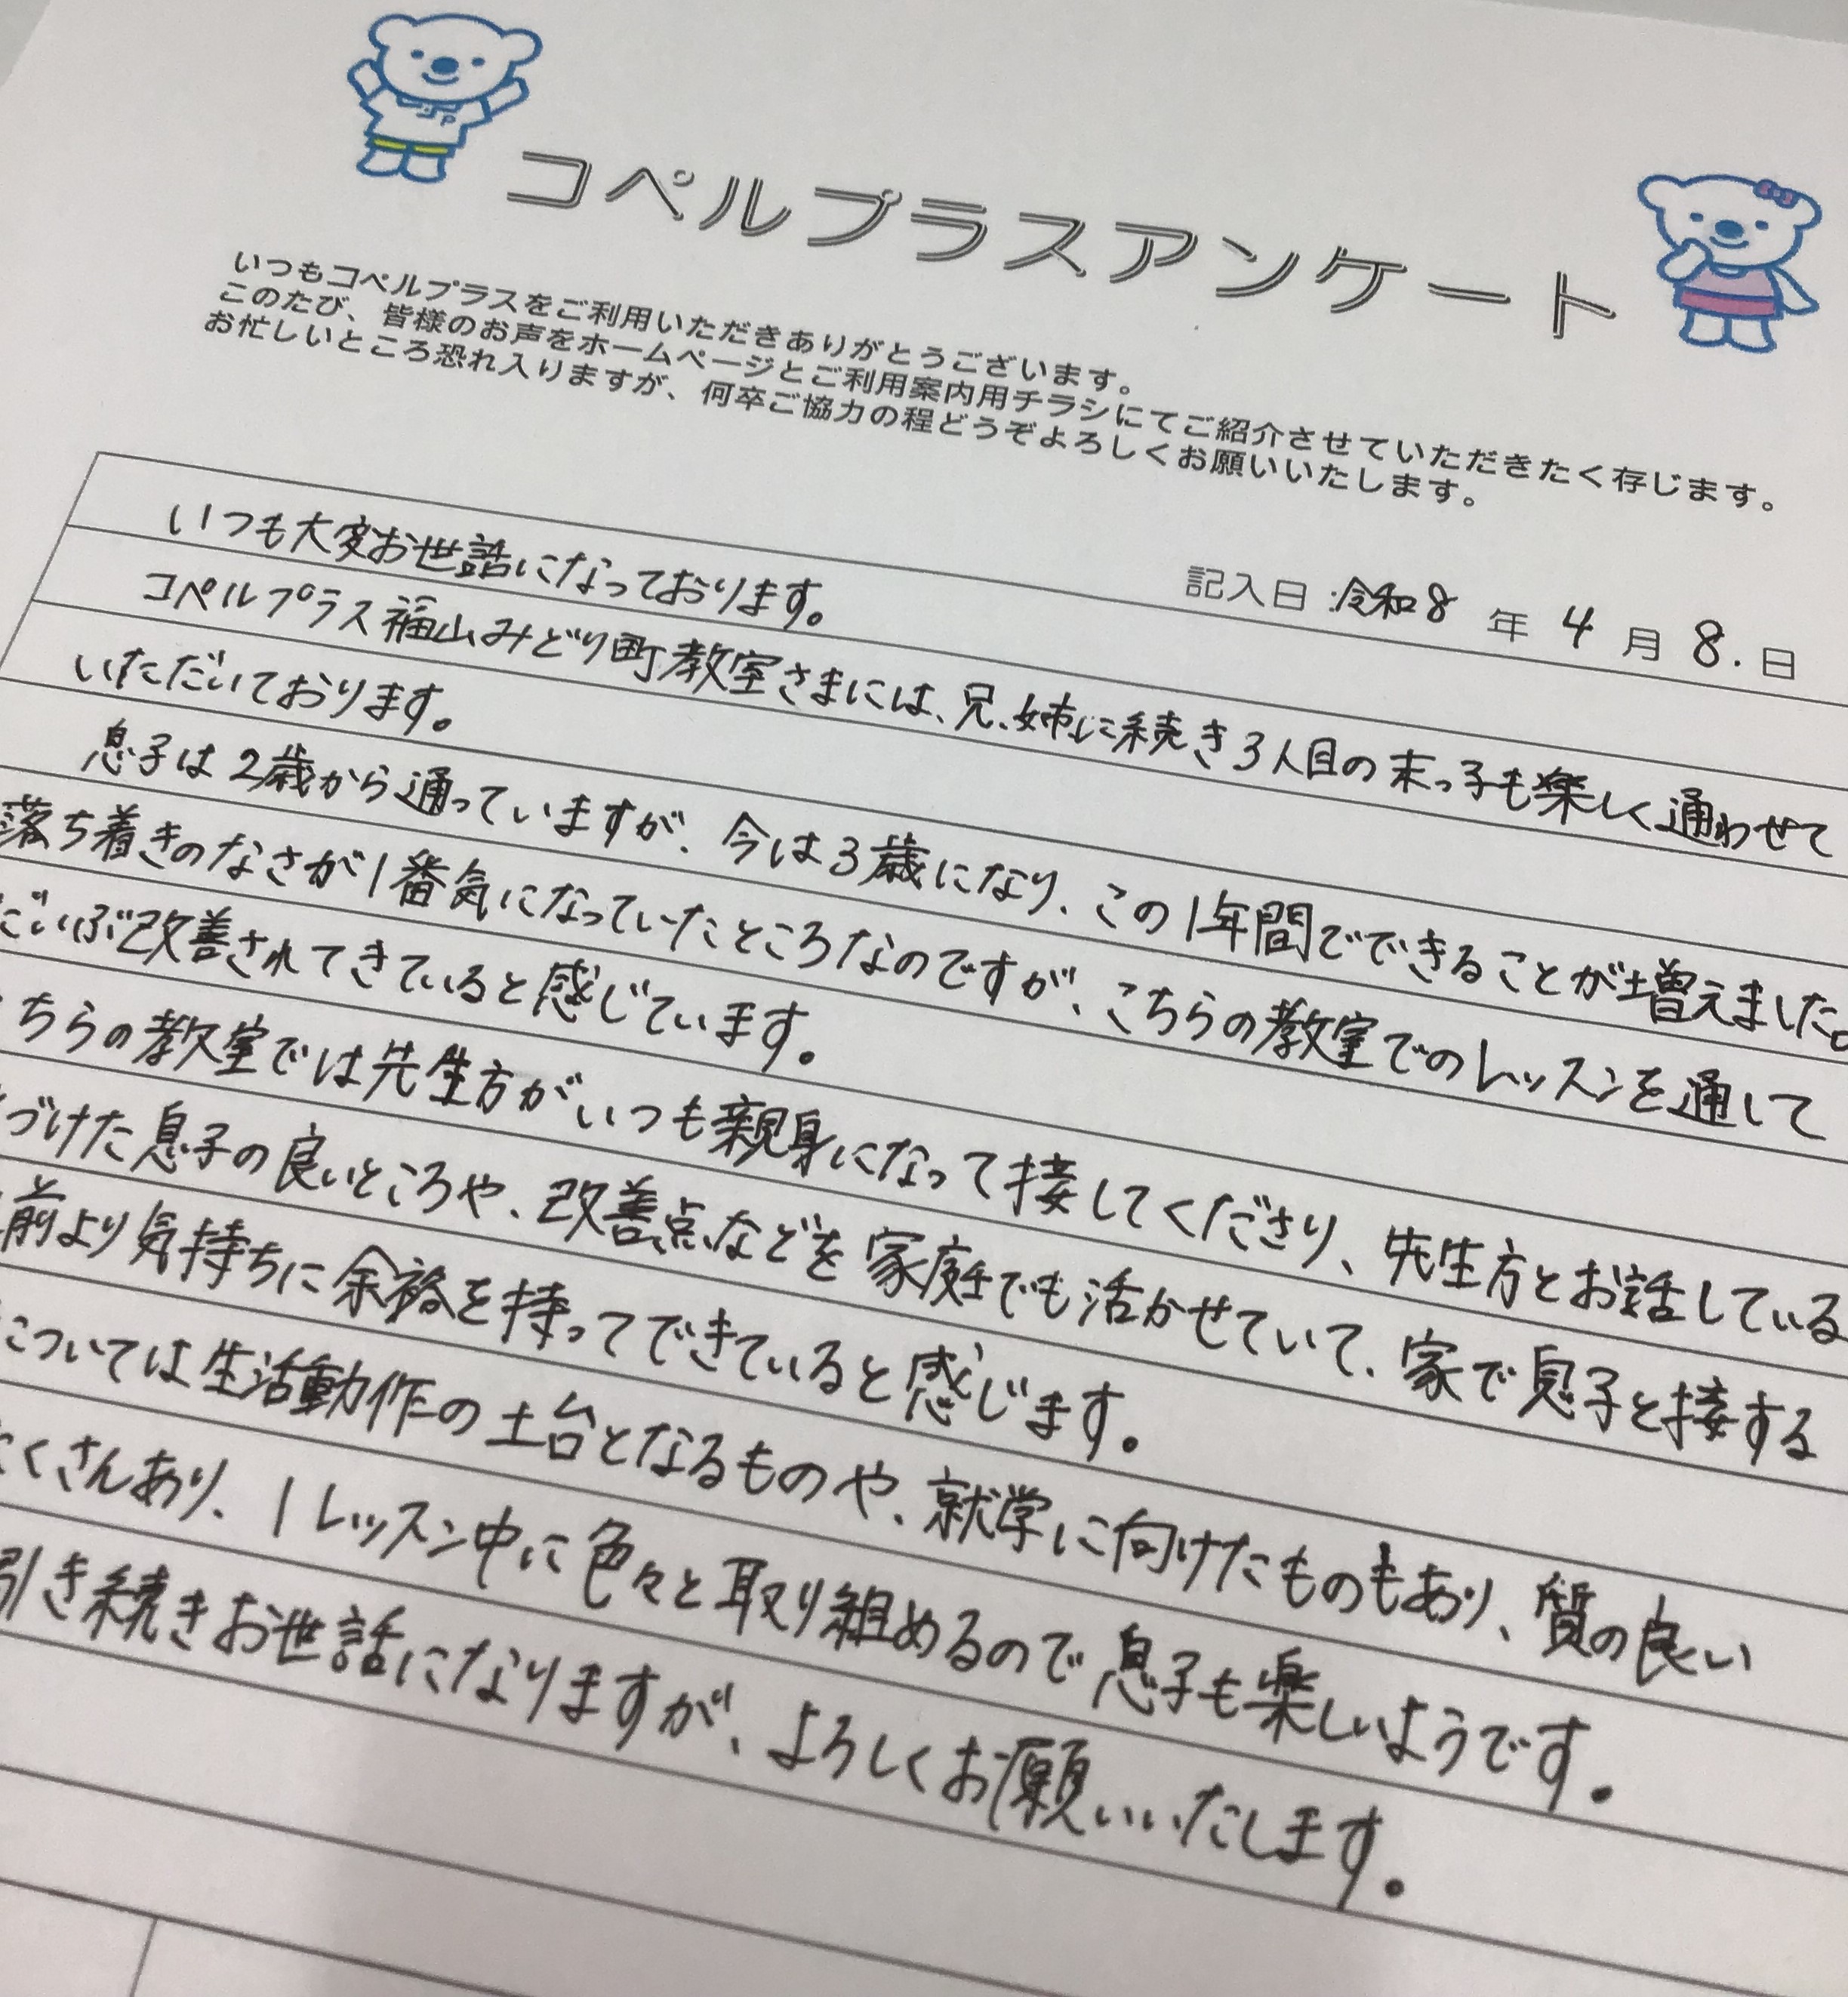 コペルプラスアンケート
いつもコペルプラスをご利用いただきありがとうございます。
このたび、皆様のお声をホームページとご利用案内用チラシにてご紹介させていただきたく存じます。
お忙しいところ恐れ入りますが、何卒ご協力の程どうぞよろしくお願いいたします。
記入日:令和8年4月8.日
いつも大変お世話になっております。
コペルプラス福山みどり町教室さまには、兄、姉に続き3人目の末っ子も楽しく通わせて
いただいております。
息子は2歳から通っていますが、今は3歳になり、この1年間でできることが増えました。
落ち着きのなさが1番気になっていたところなのですが、こちらの教室でのレッスンを通して
だいぶ改善されてきていると感じています。
こちらの教室では先生方がいつも親身になって接してくださり、先生方とお話している
づけた息子の良いところや、改善点などを家庭でも活かせていて、家で息子と接する
前より気持ちに余裕を持ってできていると感じます。
については生活動作の土台となるものや、就学に向けたものもあり、質の良い
たくさんあり、1レッスン中に色々と取り組めるので息子も楽しいようです。
引き続きお世話になりますが、よろしくお願いいたします。